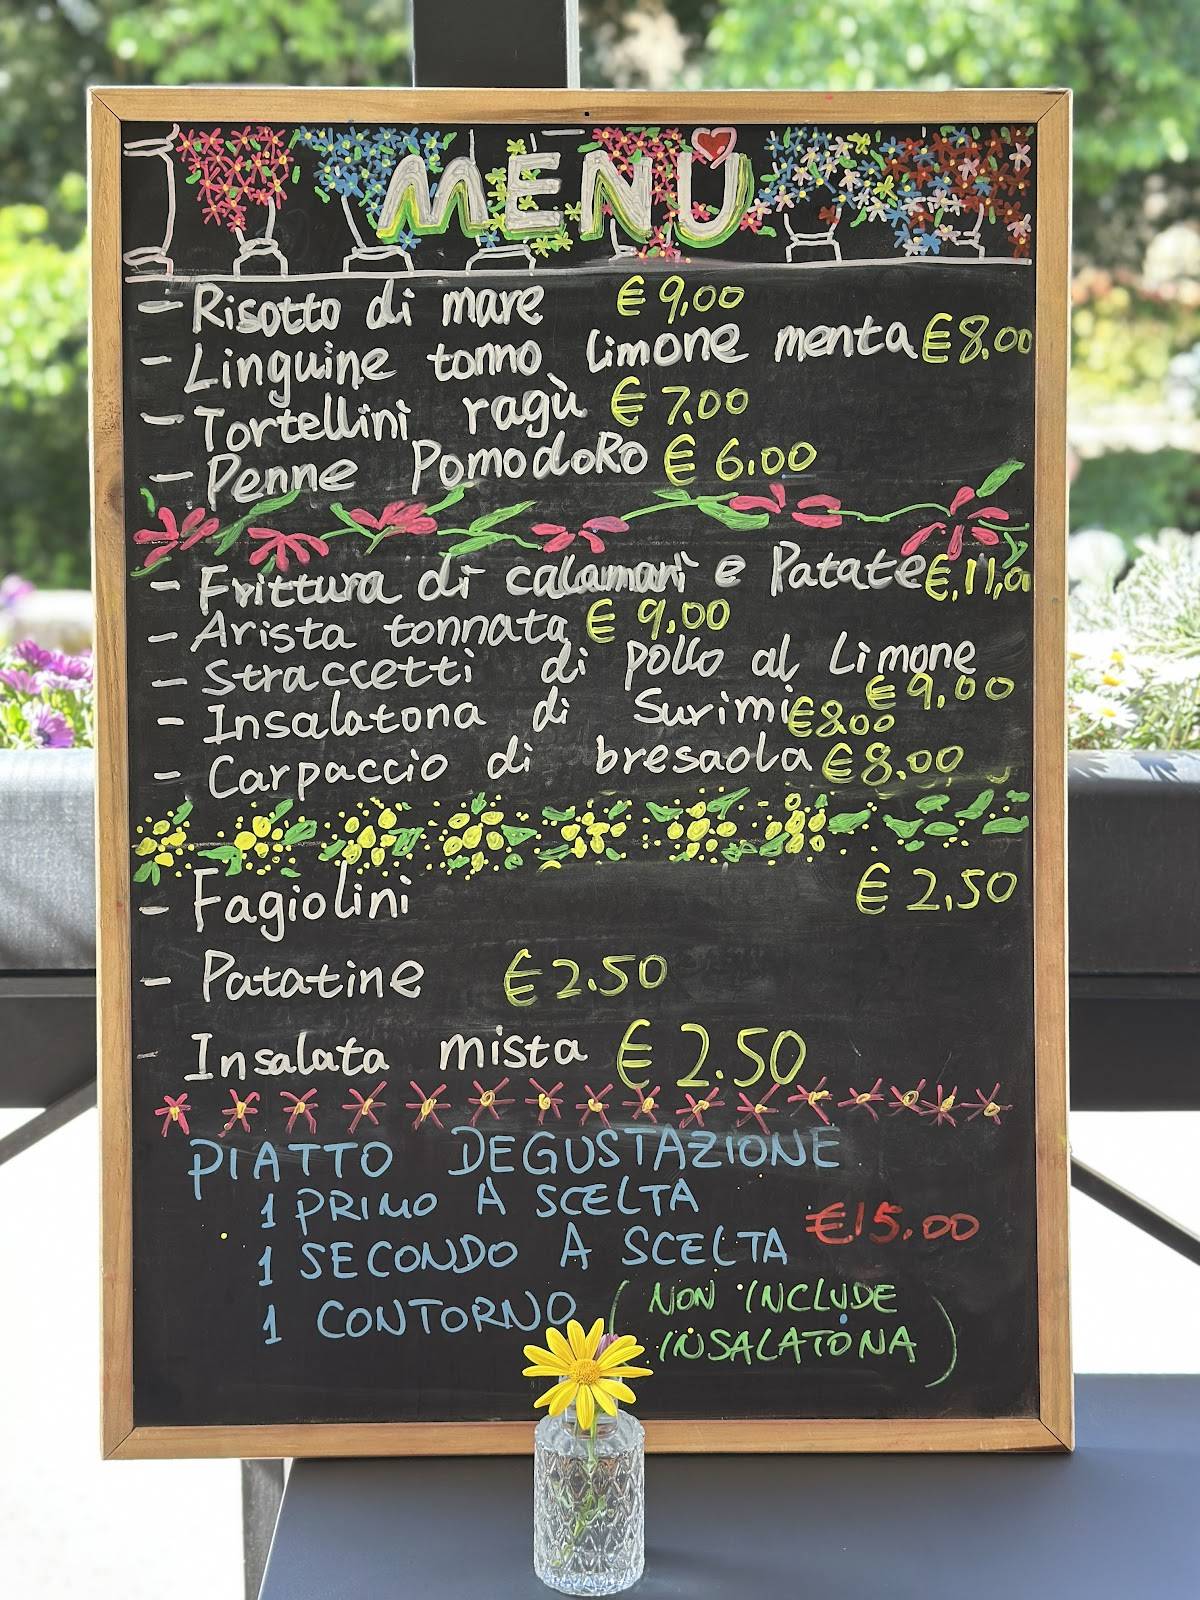 MENÙ
- Risotto di mare € 9,00
- Linguine tonno limone menta € 8.00
- Tortellini ragù € 7.00
- Penne PomodoRo € 6.00
- Frittura di calamari e Patate €.11,00
- Arista tonnata € 9,00
- Straccetti di pollo al Limone
€ 9,00
- Insalatona di Surimi €8.00
- Carpaccio di bresaola €8.00
- Fagiolini € 2.50
- Patatine € 2.50
- Insalata mista € 2.50
PIATTO DEGUSTAZIONE
1 PRIMO A SCELTA
€15.00
1 SECONDO A SCELTA
1 CONTORNO (NON INCLUDE
INSALATONA)